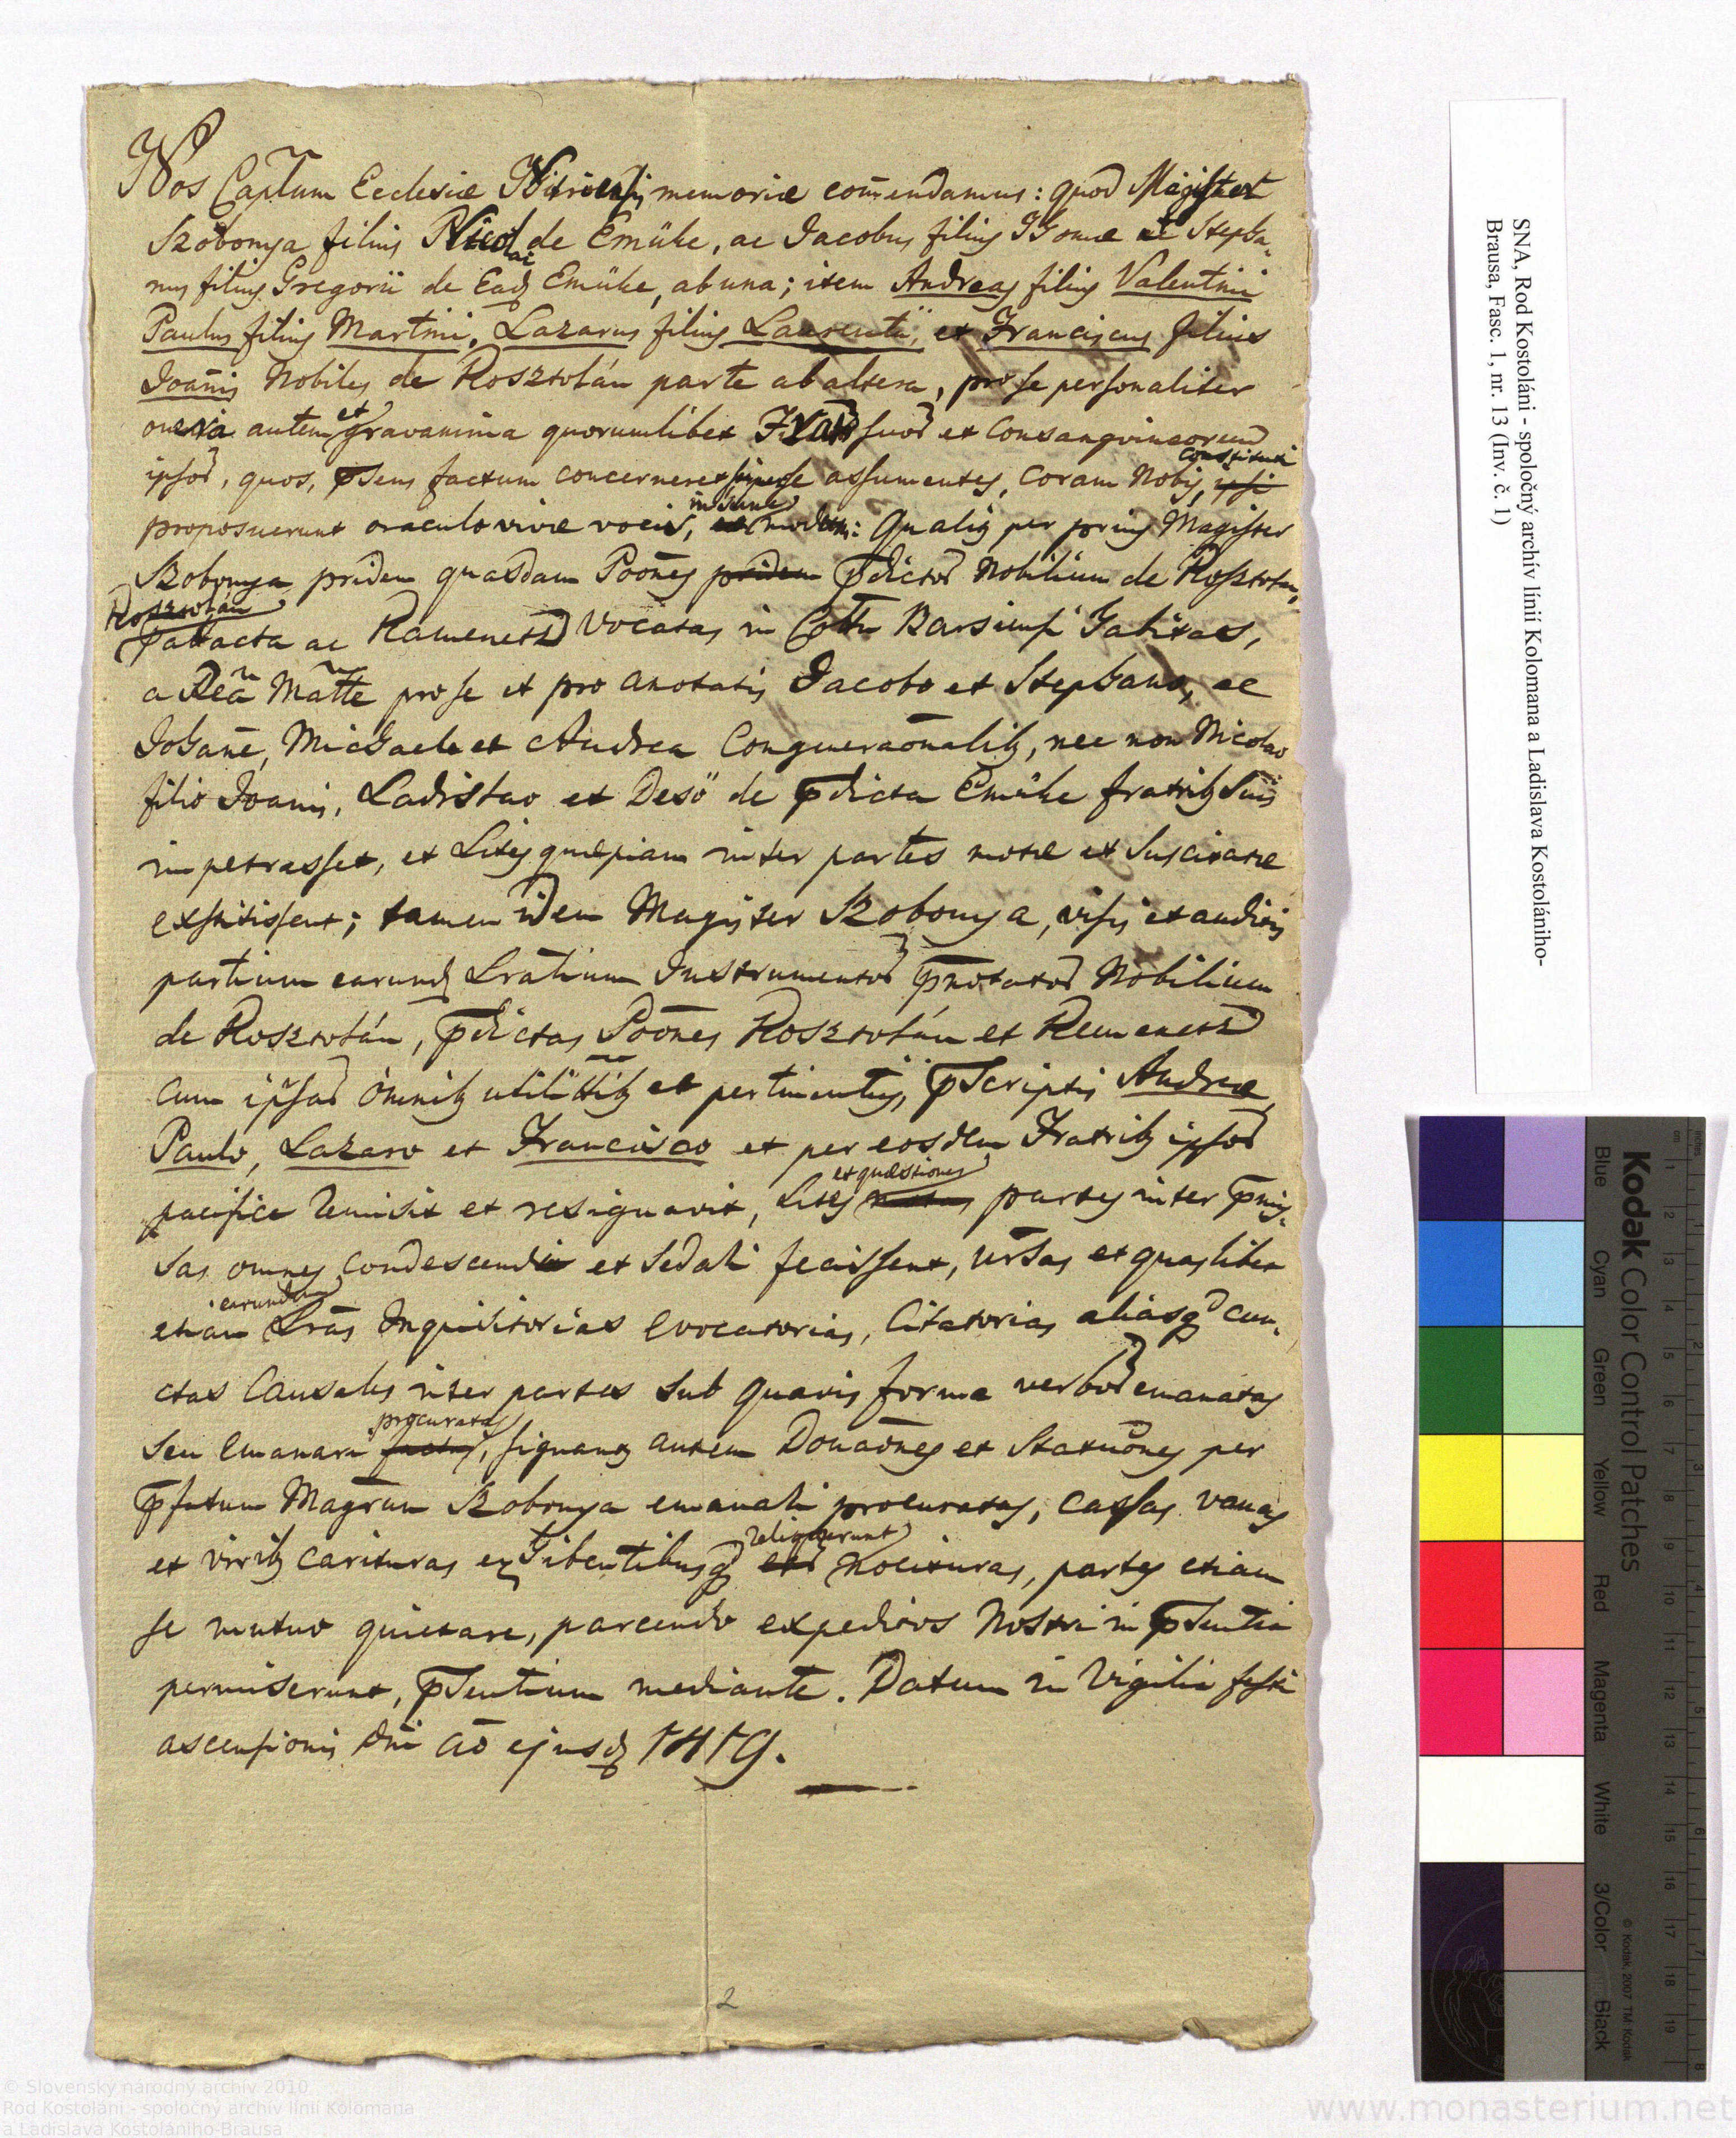 Nos Capľum Ecclesiæ Nitrien̄sis memoriæ com̄endamus: quod Magister
Szobonya filius Nicolai de Emüke, ac Jacobus filius Thomæ ac Stepha-
nus filius Gregorii de Ead Emüke, ab una; item Andreas filius Valentini
Paulus filius Martini, Lazarus filius Laurentii, et Franciscus filius
Joan̄is Nobiles de Kosztolán parte ab altera, pro se personaliter
onera autem et gravamina quorumlibet Frat suor et Consangvineorum
ipsor, quos, psens factum concerneret super se assumentes, coram Nobis, ipsi constituti
proposuerunt oraculo vivæ vocis, in hunc modum: Qualiter per prius Magister
Szobonya pridem quasdam Poōnes pridem p̄dictor Nobilium de Kosztolan,
Kosztolán
pallacta ac Kamenetz vocatas in Cottu Barsiensi habitas,
a Reã Matte pro se et pro anotatis Jacobo et Stephano, ac
Johan̄e, Michaele et Andrea Congneraōnalib, nec non Nicolao
filio Joannis, Ladislao et Desö de p̄dicta Emüke fratrib Suis
impetrasset, et Lites quæpiam inter partes motæ et Suscitatæ
exstitissent; tamen idem Magister Szobonya, visis et auditis
partium earund Lratium Instrumentor p̄notator Nobilium
de Kosztolán, p̄dictas Poōnes Kosztolán et Kemenetz
cum ipsar om̄nib utilittib et pertinentiis, p̄scriptis Andreæ,
Paulo, Lazaro et Francisco et per eosdem Fratrib ipsor
pacifice remisit et resignavit, Lites et quæstiones partes inter p̄mis-
sas omnes condescendi et Sedari fecissent, uersas et quaslibet
etiam earundem Lras Inquisitorias evocatorias, Citatorias aliasq cun-
ctas Causales inter partes sub quavis forma verbor emanatas
seu emanari factas procuratas, signanter autem Donaōnes et Statuōnes per
p̄fatum Magrum Szobonya emanari procuratas, cassas vanas
et virib carituras exhibentibusq reliquerunt nocituras, partes etiam
se mutuo quietare, parcendo expeditos Nostri in p̄sentia
permiserunt, p̄sentium mediante. Datum in Vigilia festi
ascensionis Dn̄i aō ejusd 1419.
2
SNA, Rod Kostoláni - spoločný archív línií Kolomana a Ladislava Kostolániho-
Brausa, Fasc. 1, nr. 13 (Inv. č. 1)
Kodak Color Control Patches
Blue Cyan Green Yellow Red Magenta White 3/Color Black
© Kodak, 2007 TM: Kodak
© Slovenský národný archív 2010
Rod Kostoláni - spoločný archív línií Kolomana
a Ladislava Kostolániho-Brausa
www.monasterium.net